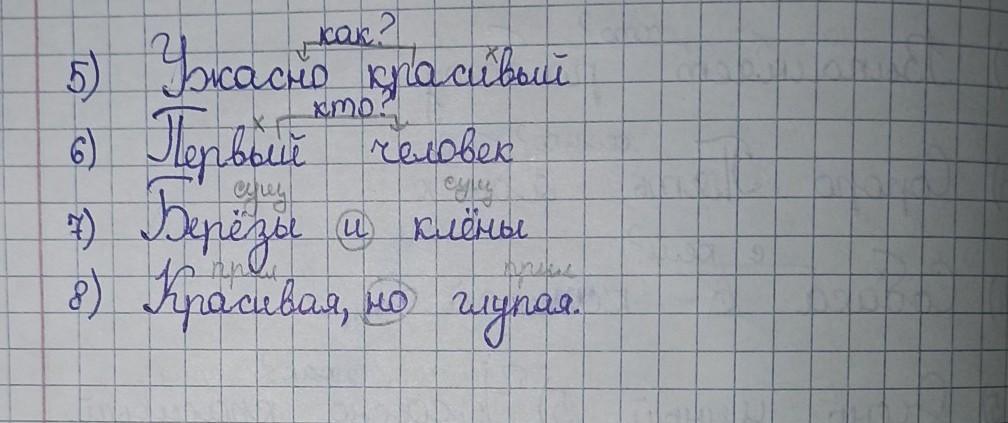 как?
5) Ужасно красивый
кто?
6) Первый человек
сущ сущ
7) Берёзы и клёны
прил прил
8) Красивая, но глупая.